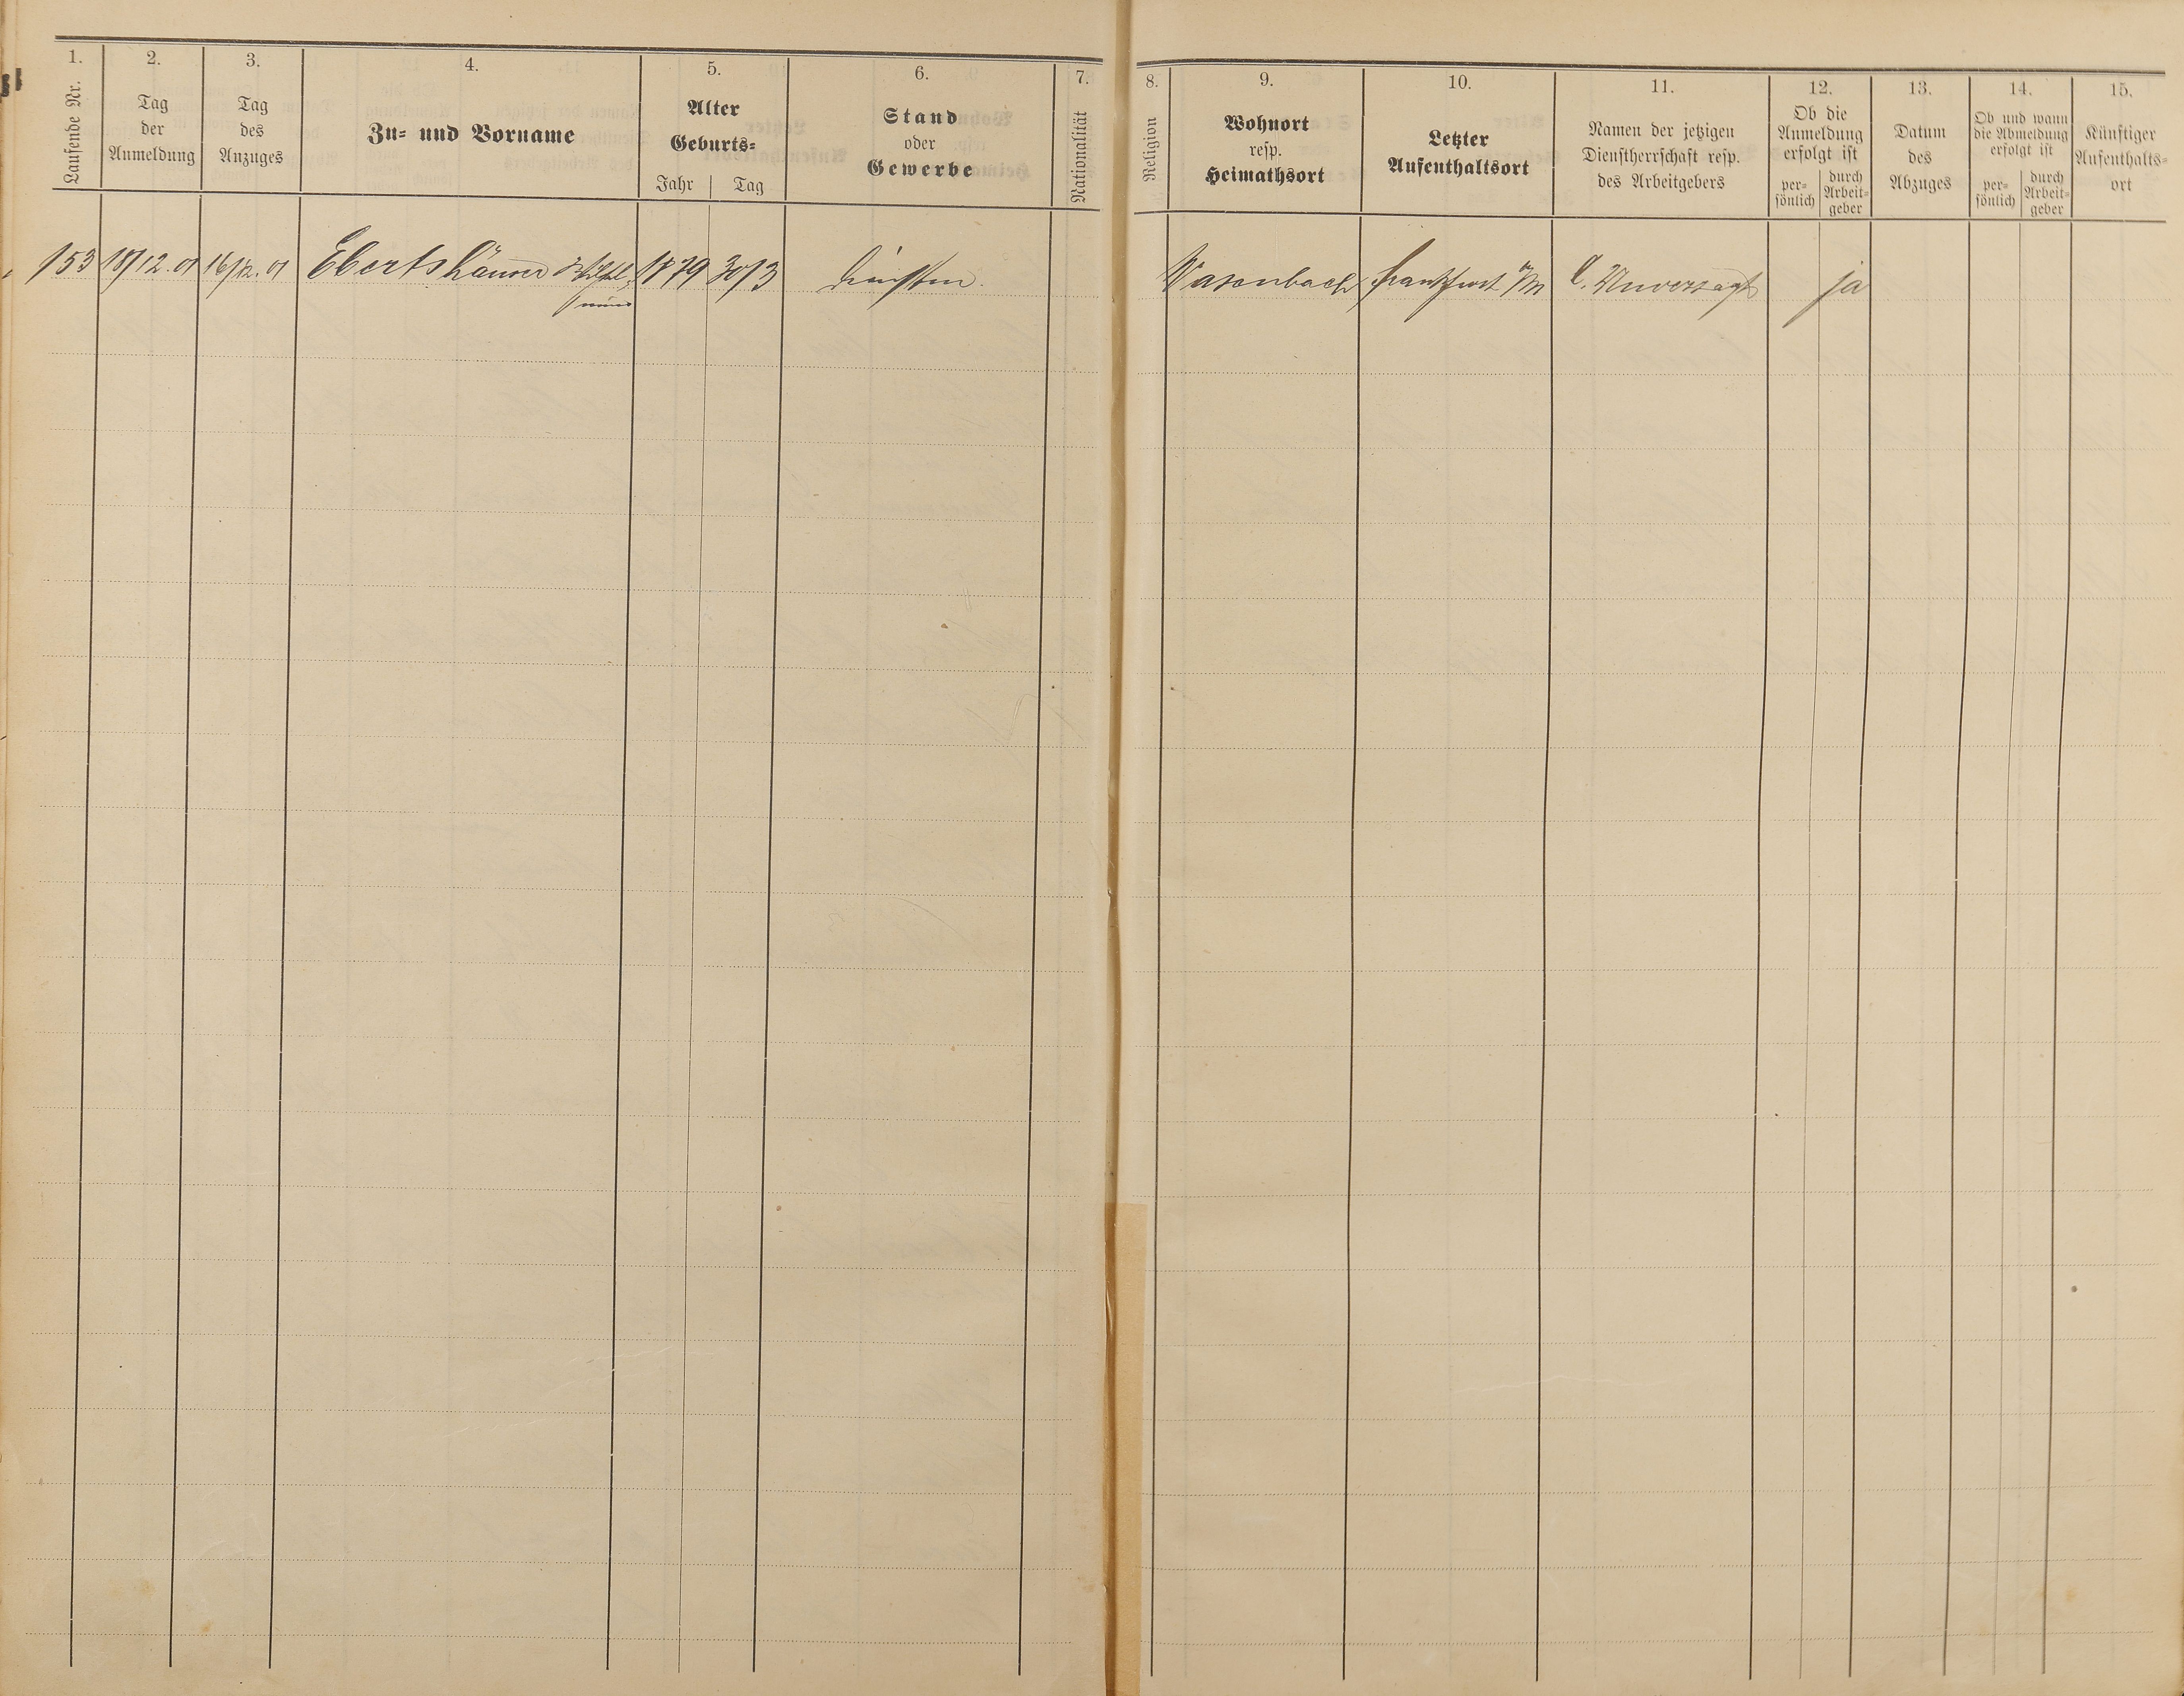 1. 2. 3. 4. 5. 6. 7. 8. 9. 10. 11. 12. 13. 14. 15.
Laufende Nr.
Tag
der
Anmeldung
Tag
des
Anzuges
Zu- und Vorname
Alter
Geburts-
Jahr | Tag
Stand
oder
Gewerbe
Nationalität
Religion
Wohnort
resp.
Heimathsort
Letzter
Aufenthaltsort
Namen der jetzigen
Dienstherrschaft resp.
des Arbeitgebers
Ob die
Anmeldung
erfolgt ist
per-
sönlich
durch
Arbeit-
geber
Datum
des
Abzuges
Ob und wann
die Abmeldung
erfolgt ist
per-
sönlich
durch
Arbeit-
geber
Künftiger
Aufenthalts-
ort
153 18/12.01 16/12.01 Ebertshäuser Wilhel- 1879 30/3 Wasenbach Frankfurt a/M C. Unverzagt ja
mine